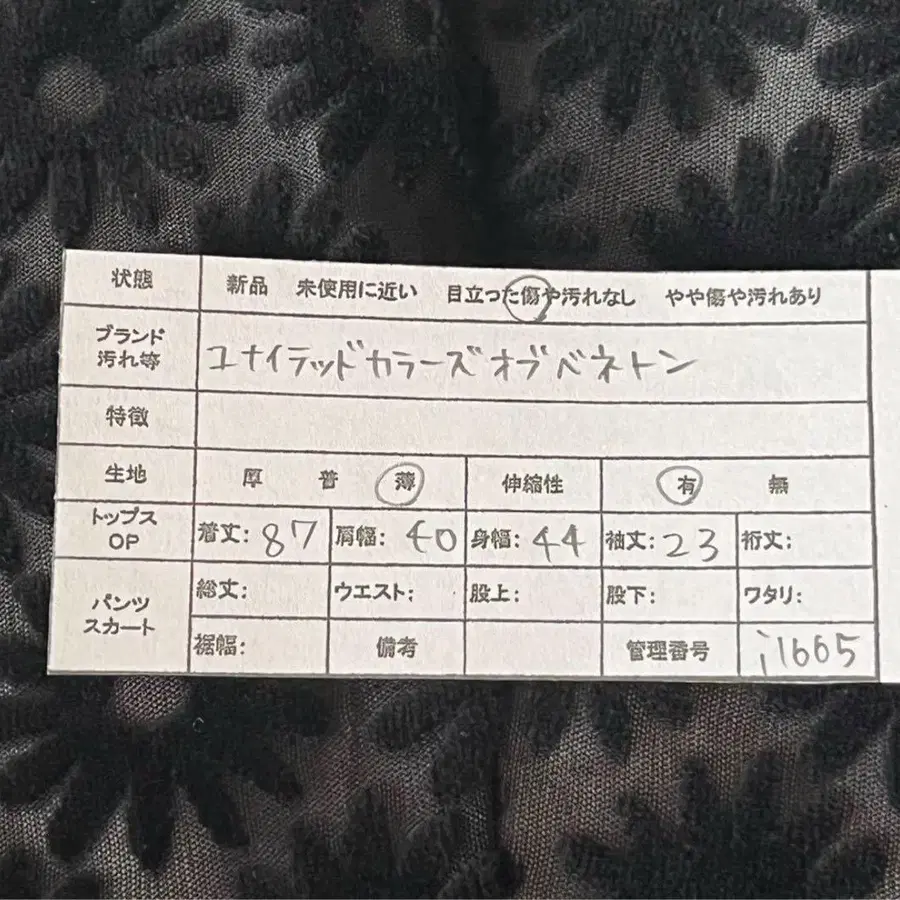 状態 新品 未使用に近い 目立った傷や汚れなし やや傷や汚れあり
ブランド
汚れ等 ユナイテッドカラーズオブベネトン
特徴
生地 厚 普 薄 伸縮性 有 無
トップス
OP 着丈: 87 肩幅: 40 身幅: 44 袖丈: 23 裄丈:
パンツ
スカート 総丈: ウエスト: 股上: 股下: ワタリ:
裾幅: 備考 管理番号 i1665